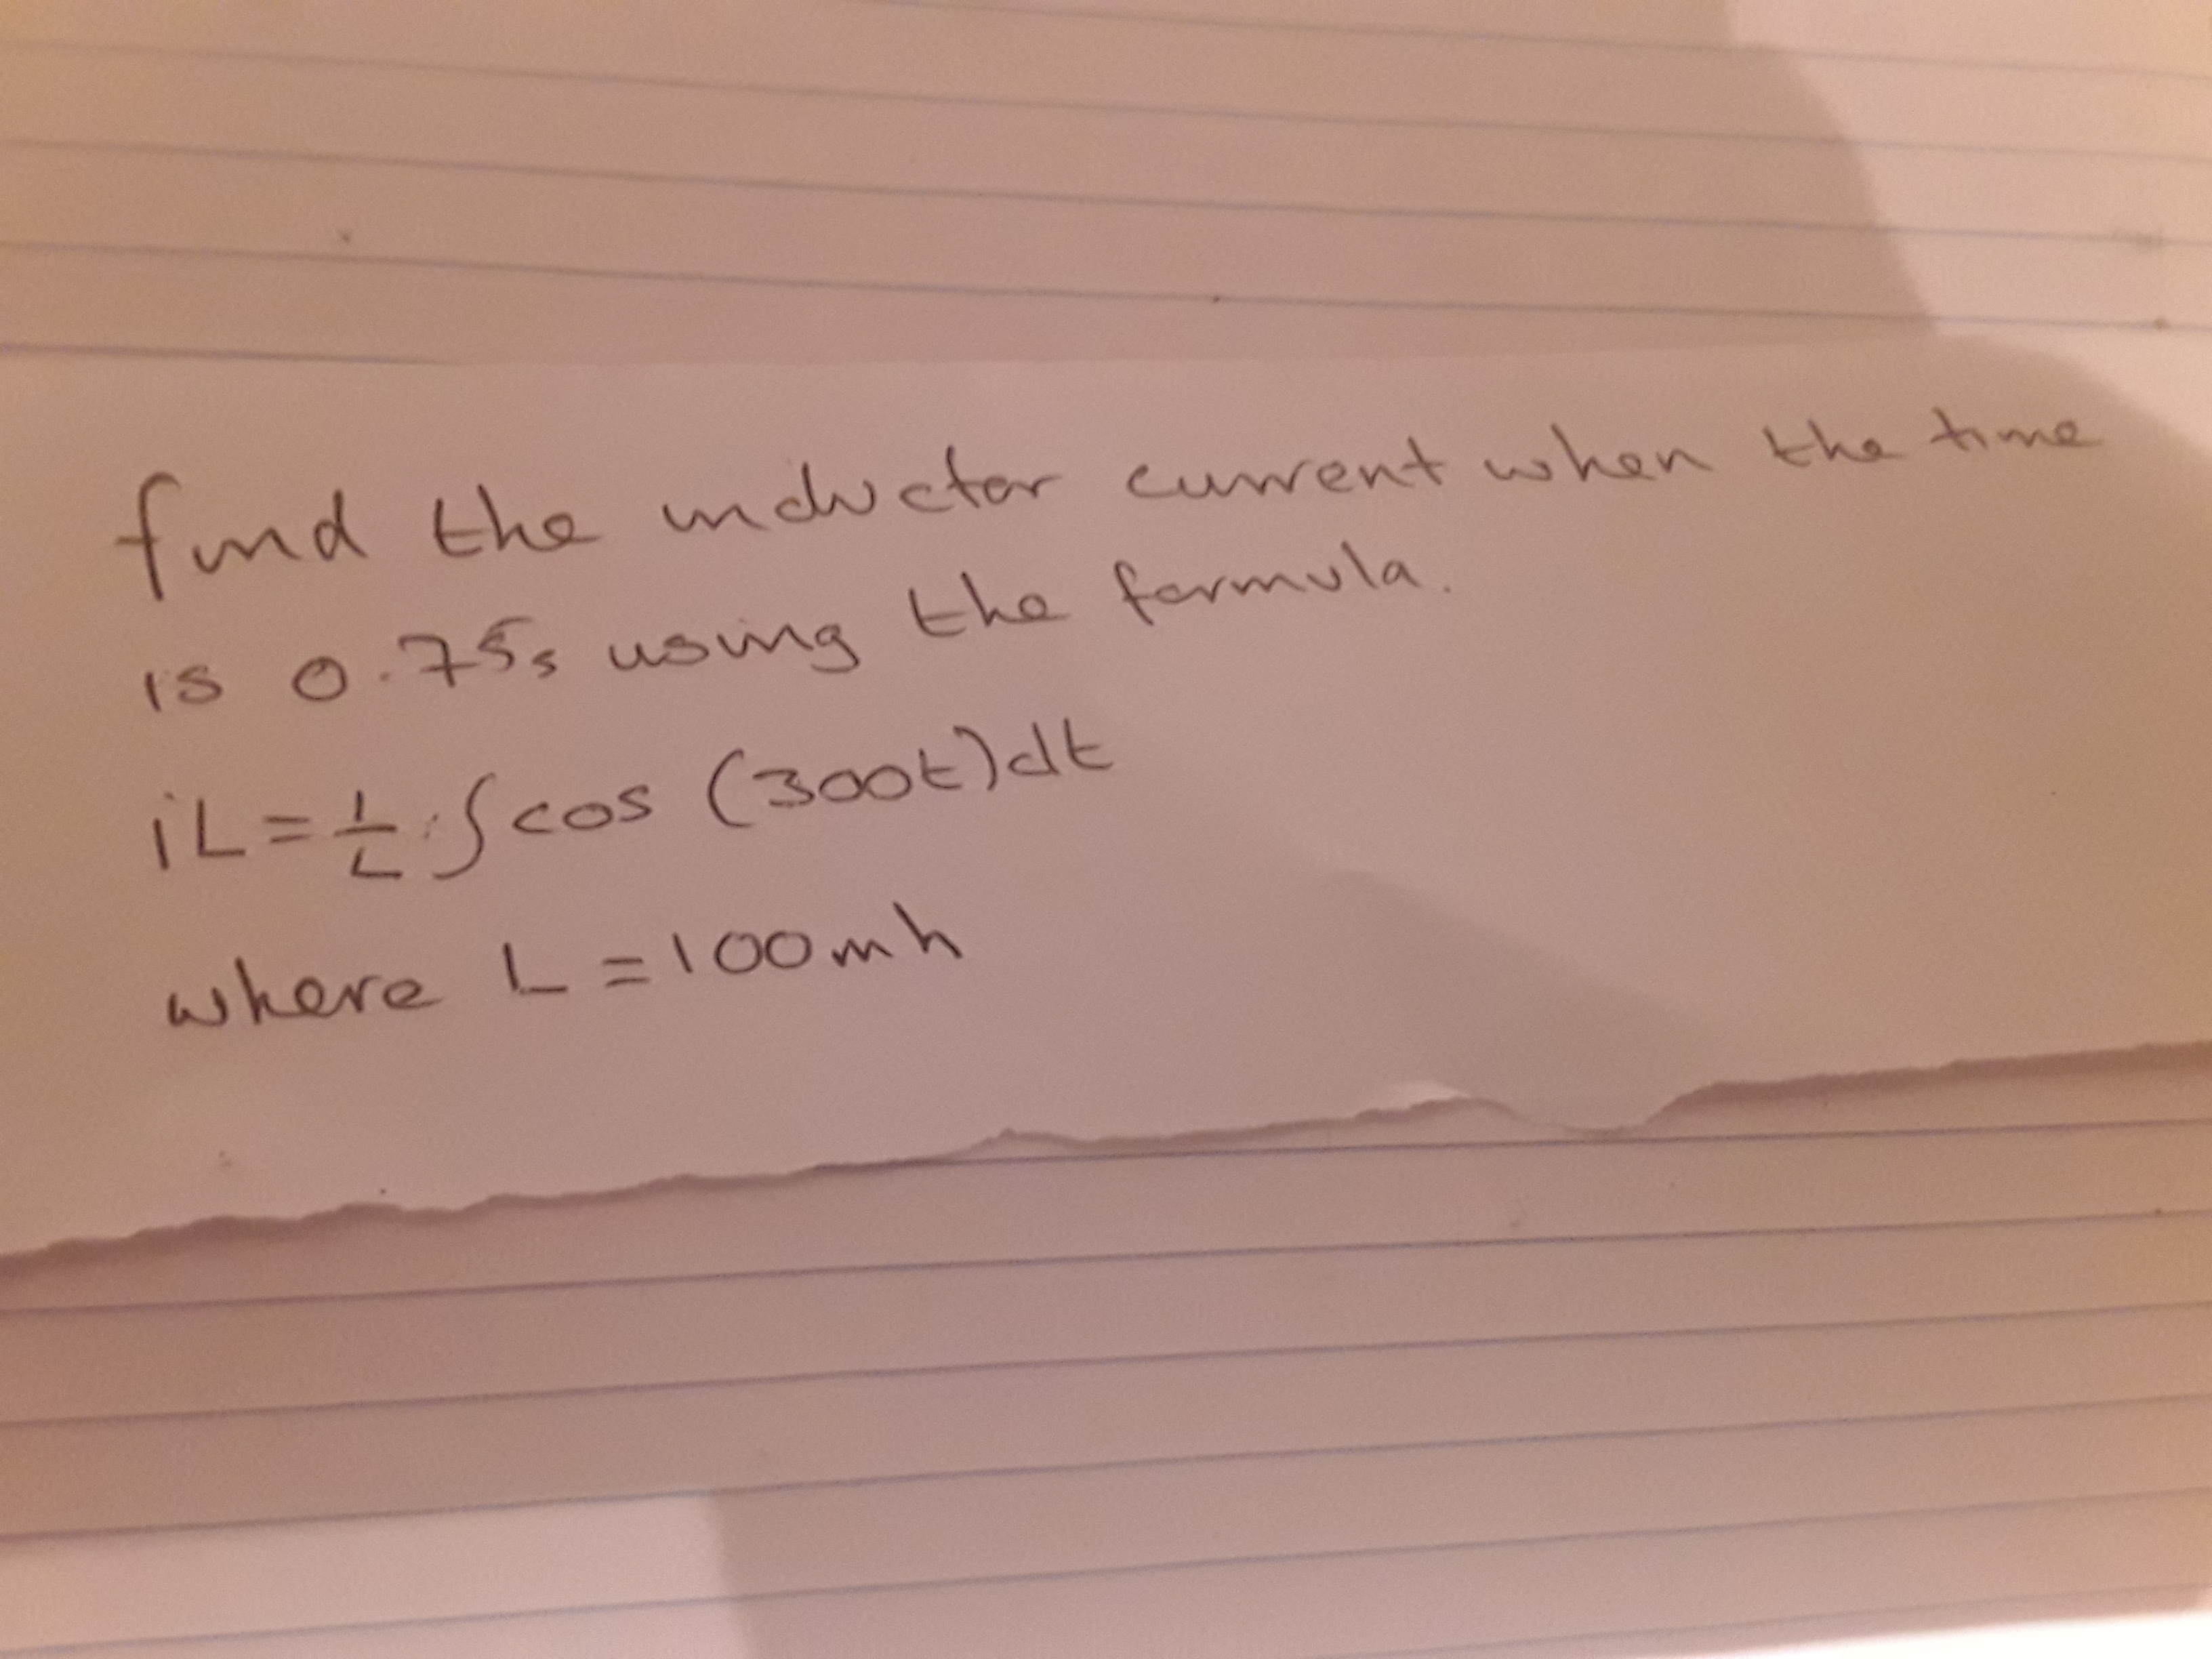 find the inductor current when the time
is 0.75s using the formula.
iL = 1/L ∫ cos (300t)dt
where L = 100mh